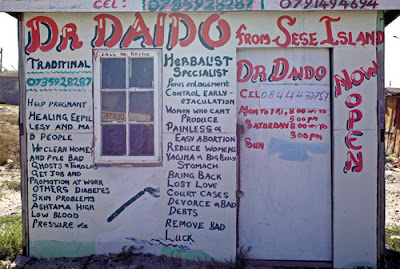 CELL: 0735928287 0791494694
DR DAIDO FROM SESE ISLAND
TRADITINAL
0735928287
HELP PREGNANT
HEALING EEPIL
LESY AND MA
D PEOPLE
WE CLEAN HOMES
AND PLCE BAD
GHOSTS & TOKOLOS
GET JOB AND
PROMOTION AT WORK
OTHERS DIABETES
SKIN PROBLEMS
ASHTAMA HIGH
LOW BLOOD
PRESSURE etc
CALL ME DAIDO
HERBALIST
SPECIALIST
PENIS ENLARGEMENT
CONTROL EARLY
EJACULATION
WOMEN WHO CAN'T
PRODUCE
PAINLESS &
EASY ABORTION
REDUCE WOMENS
VAGINA & BIG BELLY
STOMACH
BRING BACK
LOST LOVE
COURT CASES
DEVORCE & BAD
DEBTS
REMOVE BAD
LUCK
DR DAIDO
CELL
MON TO FRI
8:00 am TO
5:00 pm
SATURDAY
8:00 am TO
3:00 pm
SUN
NOW OPEN